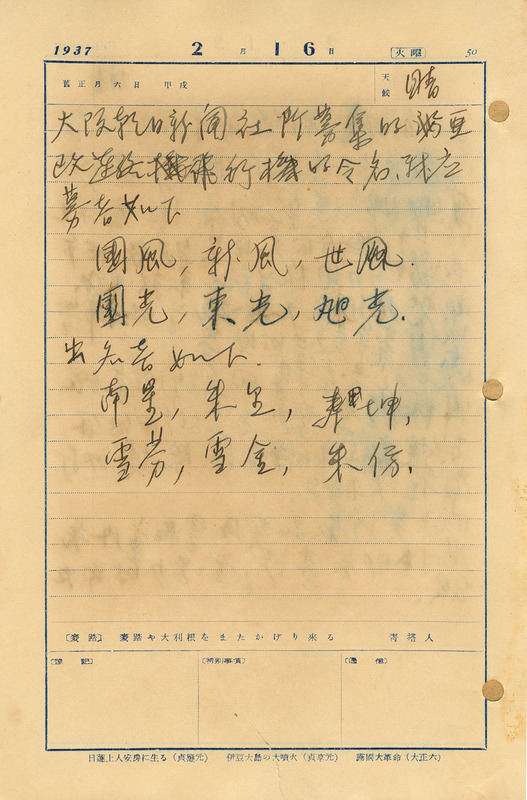 1937 2月16日 火曜 50
舊正月六日 甲戌 天候 晴
大阪朝日新聞社所募集的
改 行機的令名,我应
募者如下
國風, 新風, 世風.
國光, 東光, 旭光.
出名者如下.
南星, 朱全, 乾坤,
雪芬, 雪金, 朱
〔麥踏〕 麥踏や大利根をまたかげり来る 青塔人
〔雜記〕 〔特別事項〕 〔通信〕
日蓮上人安房に生る(貞應元) 伊豆大島の大噴火(貞享元) 露國大革命(大正六)